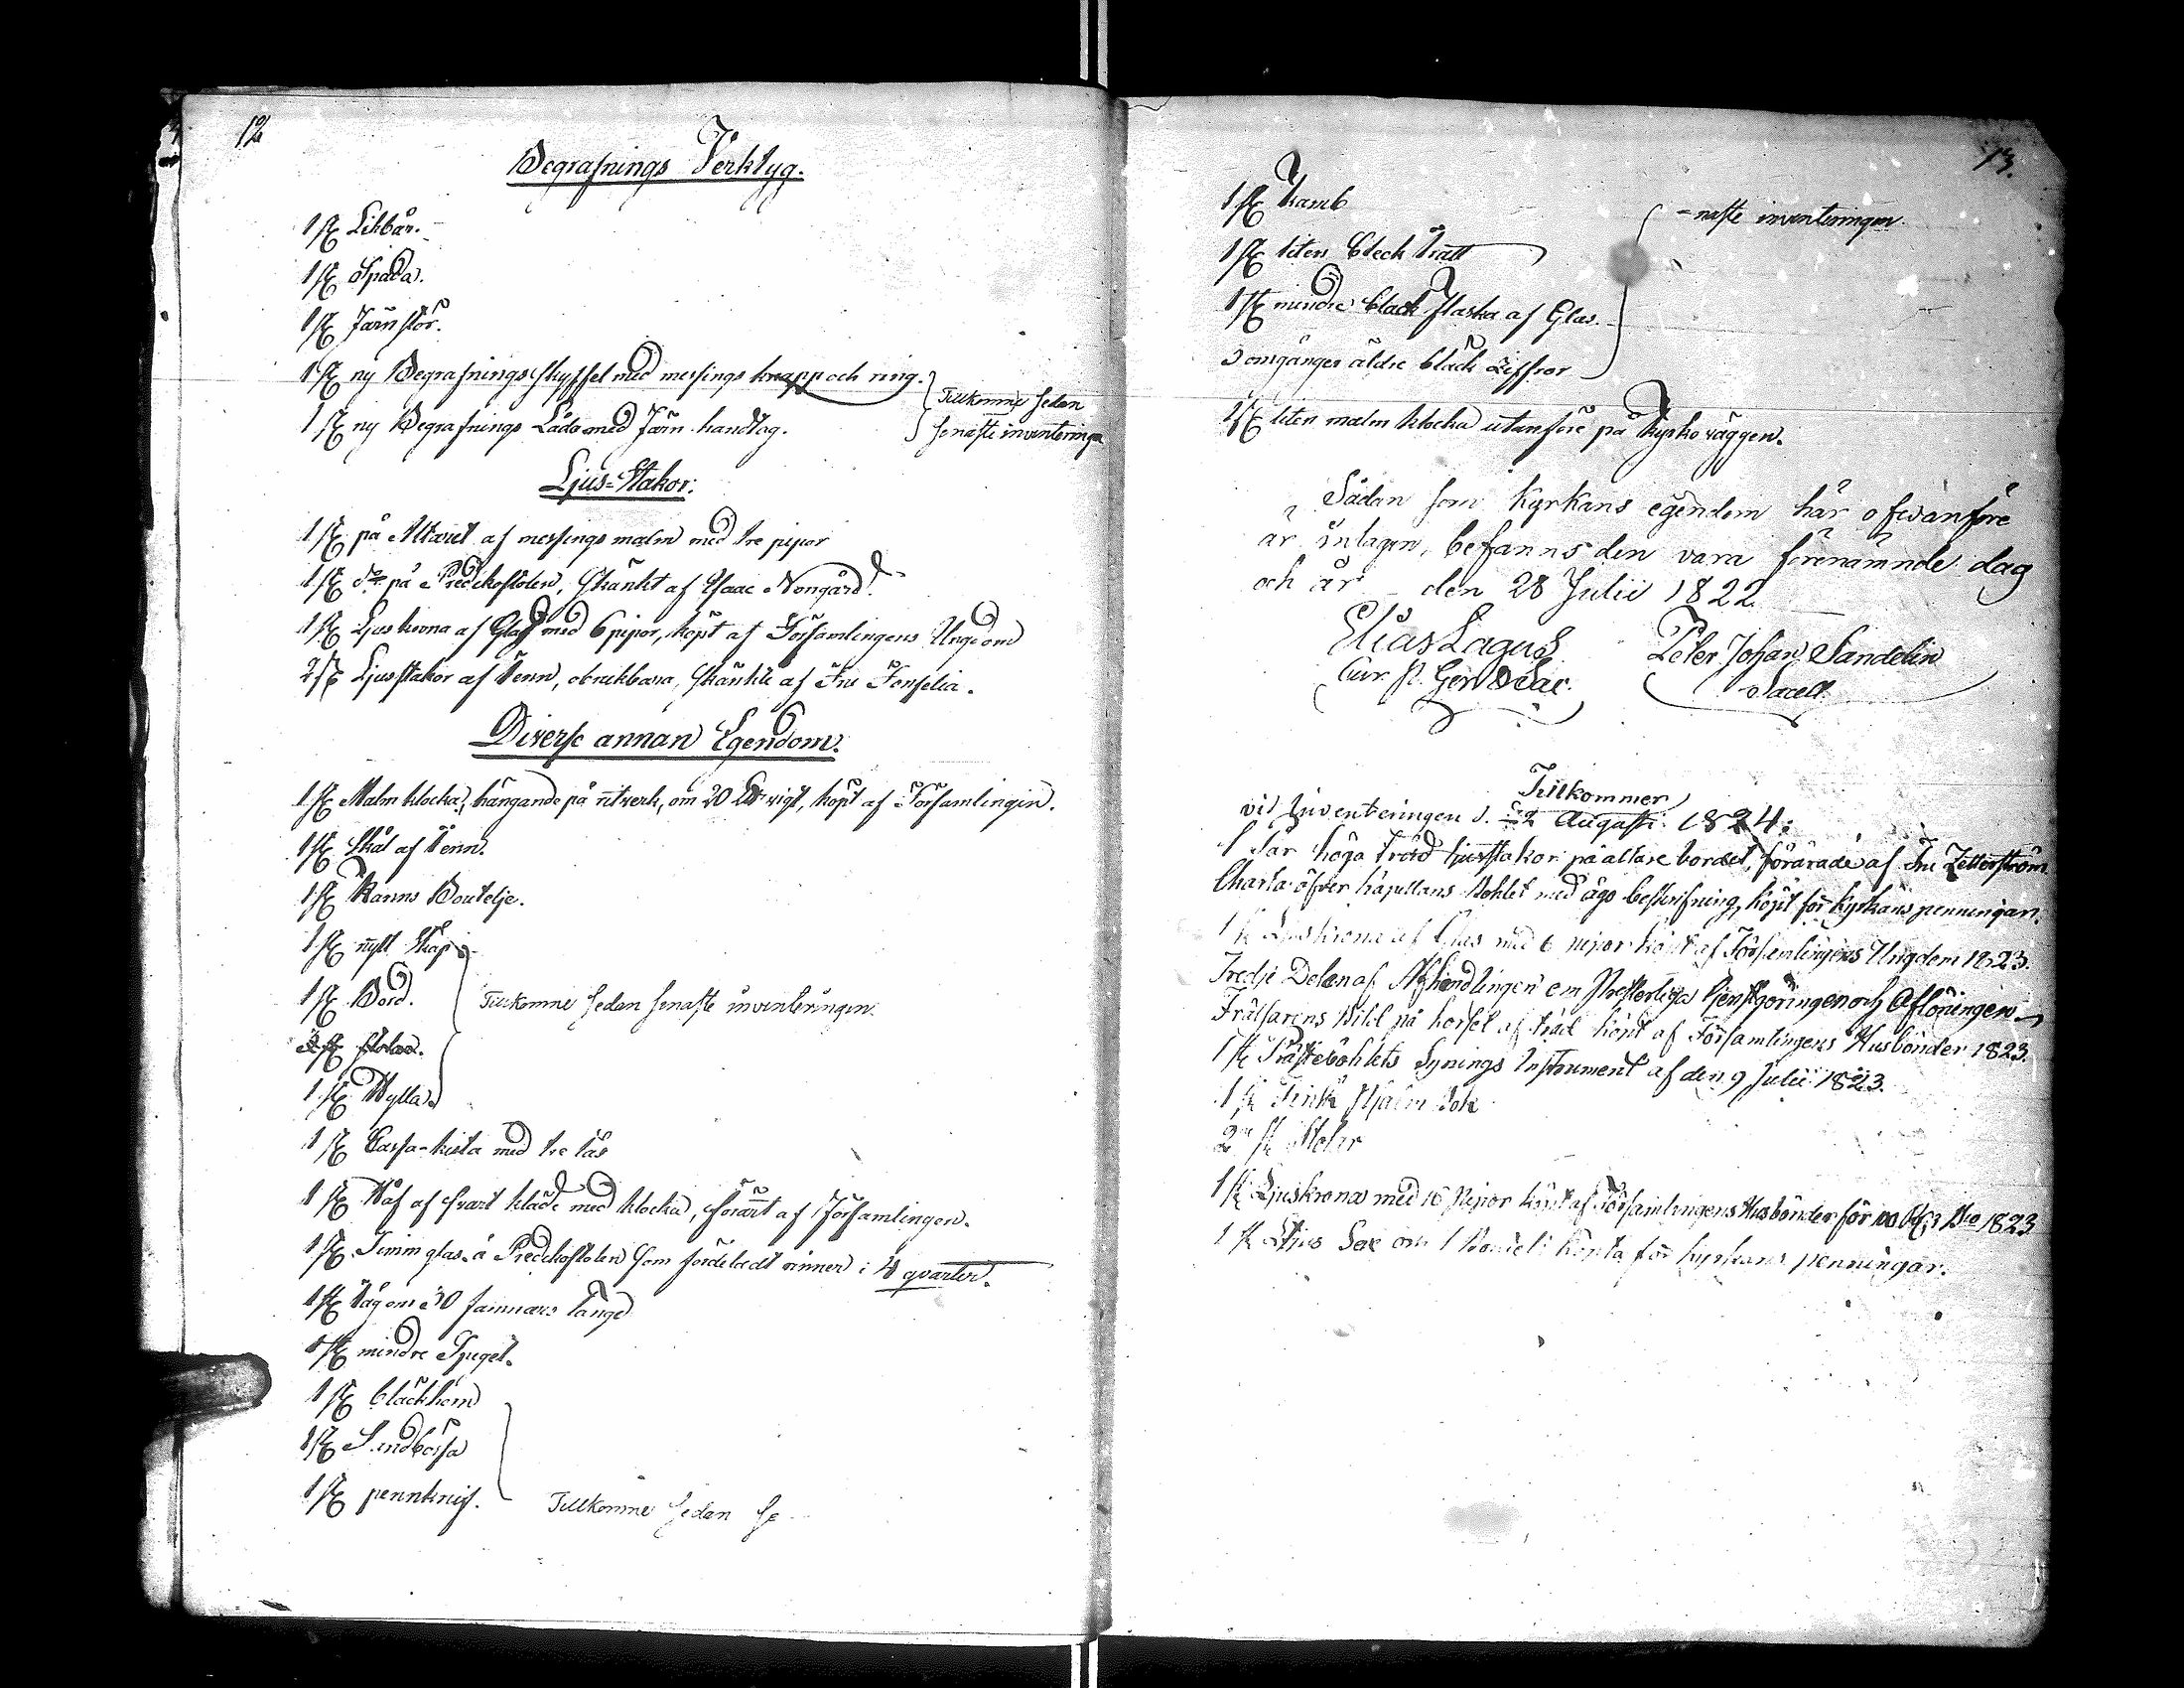 12
Begrafnings Verktyg.
1 st Likbår.
1 st Spada.
1 st Järnstör.
1 st ny Begrafnings skyffel med messings knapp och ring.
1 st ny Begrafnings Låda med Järn handtag.
Tillkomne sedan
senaste inventeringen
Ljus-Stakor:
1 st på Altaret af messings malm med tre pipor
1 st do på Predikostolen, skänkt af Isaac Nongård.
1 st Ljuskrona af Glas med 6 pipor, köpt af Församlingens Ungdom
2 st Ljusstakor af Tenn, obrukbara, skänkte af Fru Fonselia.
Diverse annan Egendom.
1 st Malm klocka, hängande på , om 20 vigt, köpt af Församlingen.
1 st Skål af Tenn.
1 st Kanns Boutelje.
1 st nytt Skåp
1 st Bord.
st stolar.
1 st Hylla
Tillkomne sedan senaste inventeringen.
1 st Cassa-kista med tre lås
1 st Håf af svart kläde med klocka, förärt af Församlingen.
1 st Timm glas å Predikostolen som fördeladt rinner i 4 qvarter.
1 st Tåg om 30 famnars längd
1 st mindre Spegel.
1 st bläckhorn
1 st Sandbössa
1 st pennknif.
Tillkomne sedan se
13.
1 st Kamb
1 st liten bleck Tratt
1 st mindre bläck flaska af Glas.
3 omgånger äldre bläck Ziffror
-naste inventeringen.
1 st liten malm klocka utanföre på Kyrko väggen.
Sådan som Kyrkans egendom här ofvanföre
är intagen, befanns den vara förenämnde dag
och år den 28 Julii 1822
Elias Lagus
Peter Johan Sandelin
Cur. p. Gen & Sac.
Sacell.
Tillkommer
vid Inventeringen d. 22 Augusti. 1824:
1 Par höga träd ljusstakor på altare bordet, förärade af Fru Zetterström.
Charta öfver kapellans Bohlet med ägo beskrifning, köpt för kyrkans penningar.
1 st Ljuskrona af Glas med 6 pipor köpt af Församlingens Ungdom 1823.
Tredje Delen af Afhandlingen om Presterliga tjenstgöringen och Aflöningen
Frälsarens Bild på korset af träd köpt af Församlingens Husbönder 1823.
1 st Prästebohlets Synings Instrument af den 9 Julii 1823.
1 st
2 st Stolar
1 st Ljuskrona med 16 Pipor köpt af Församlingens Husbönder för 100 1823
1 st Ljus Sax om 1 köpta för kyrkans penningar.